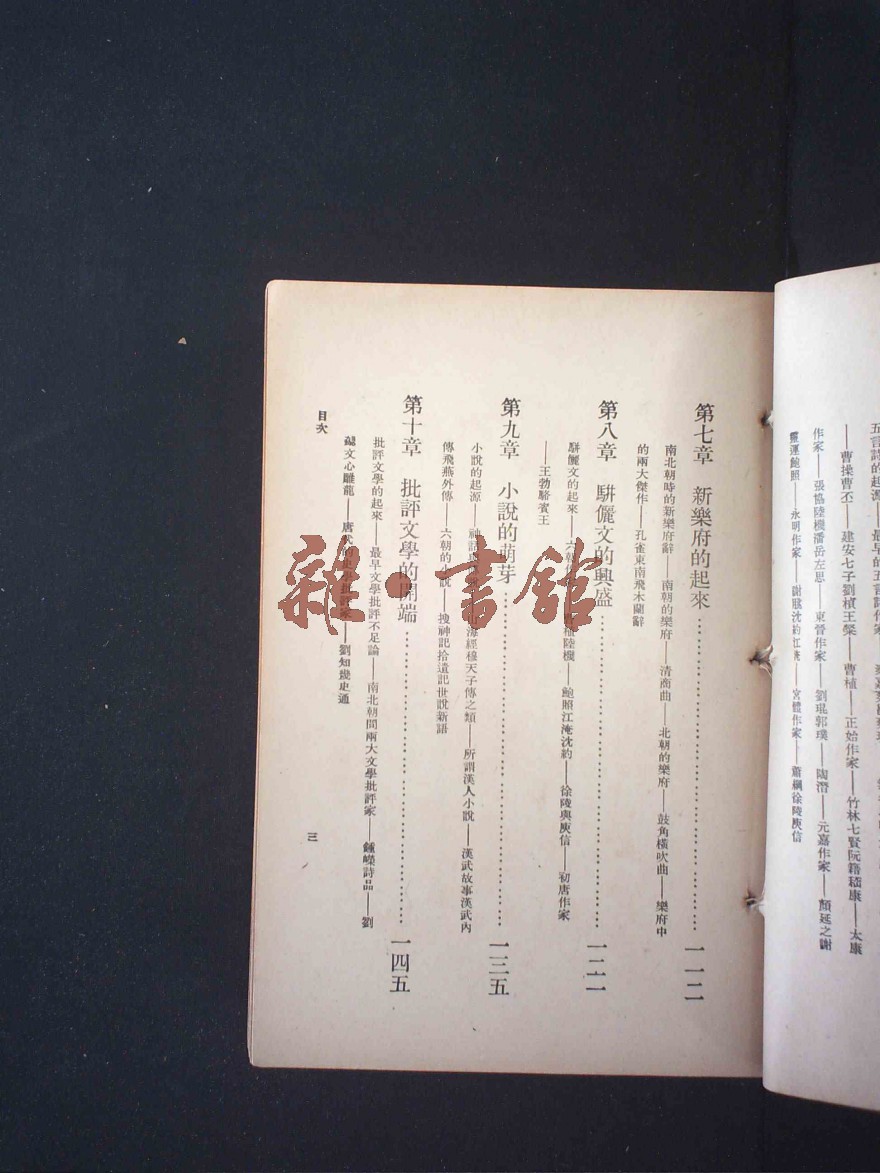 五言詩的起源——最早的五言詩作家
——曹操曹丕——建安七子劉楨王粲——曹植——正始作家——竹林七賢阮籍嵇康——太康
作家——張協陸機潘岳左思——東晉作家——劉琨郭璞——陶潛——元嘉作家——顏延之謝
靈運鮑照——永明作家——謝朓沈約江淹——宮體作家——蕭綱徐陵庾信
第七章 新樂府的起來……一一二
南北朝時的新樂府辭——南朝的樂府——清商曲——北朝的樂府——鼓角橫吹曲——樂府中
的兩大傑作——孔雀東南飛木蘭辭
第八章 駢儷文的興盛……一二一
駢儷文的起來——六朝作家——植陸機——鮑照江淹沈約——徐陵與庾信——初唐作家
——王勃駱賓王
第九章 小說的萌芽……一三五
小說的起源——神話——山海經穆天子傳之類——所謂漢人小說——漢武故事漢武內
傳飛燕外傳——六朝的小說——搜神記拾遺記世說新語
第十章 批評文學的開端……一四五
批評文學的起來——最早文學批評不足論——南北朝間兩大文學批評家——鍾嶸詩品——劉
勰文心雕龍——唐代的批評家——劉知幾史通
目次
三
雜·書館